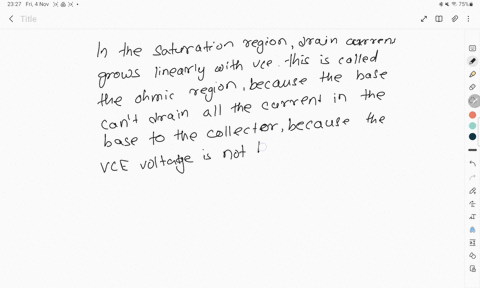 23:27 Fri, 4 Nov
75%
Title
In the saturation region, drain curren
grows linearly with vce. this is called
the ohmic region, because the base
can't drain all the current in the
base to the collector, because the
VCE voltage is not